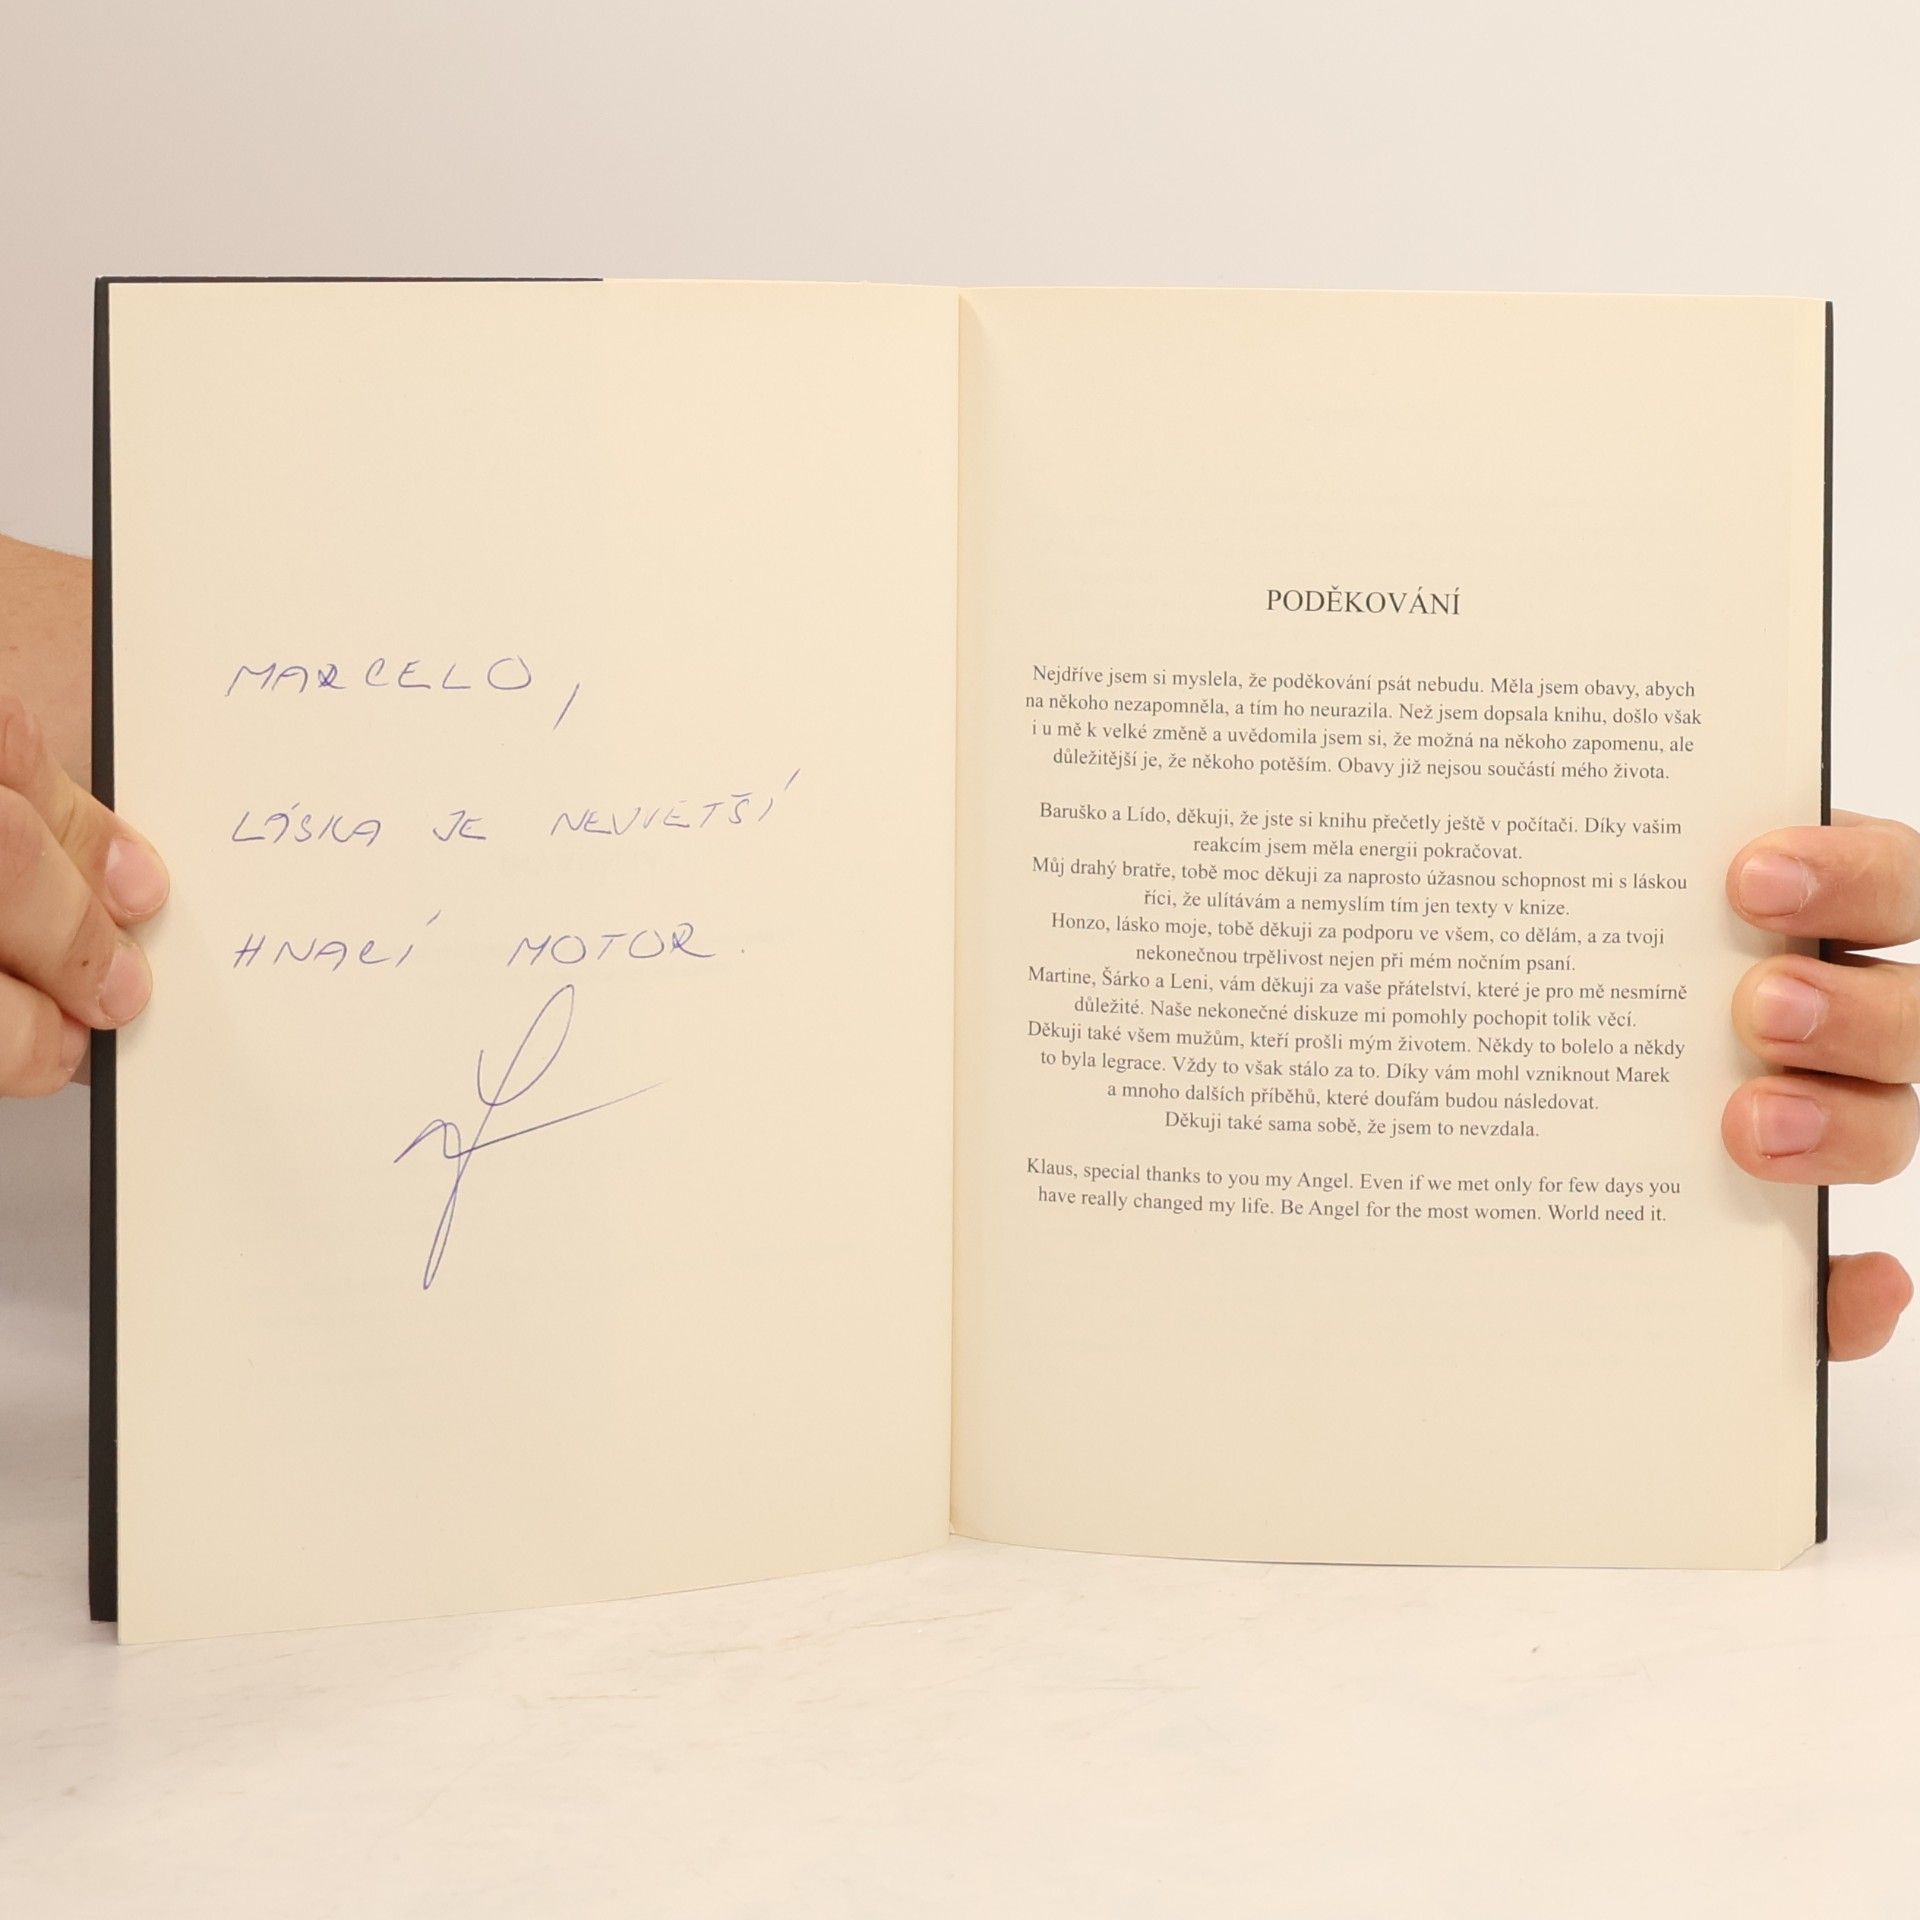 MARCELO,
LÁSKA JE NEJVĚTŠÍ
HNACÍ MOTOR.
PODĚKOVÁNÍ
Nejdříve jsem si myslela, že poděkování psát nebudu. Měla jsem obavy, abych
na někoho nezapomněla, a tím ho neurazila. Než jsem dopsala knihu, došlo však
i u mě k velké změně a uvědomila jsem si, že možná na někoho zapomenu, ale
důležitější je, že někoho potěším. Obavy již nejsou součástí mého života.
Baruško a Lído, děkuji, že jste si knihu přečetly ještě v počítači. Díky vašim
reakcím jsem měla energii pokračovat.
Můj drahý bratře, tobě moc děkuji za naprosto úžasnou schopnost mi s láskou
říci, že ulítávám a nemyslím tím jen texty v knize.
Honzo, lásko moje, tobě děkuji za podporu ve všem, co dělám, a za tvoji
nekonečnou trpělivost nejen při mém nočním psaní.
Martine, Šárko a Leni, vám děkuji za vaše přátelství, které je pro mě nesmírně
důležité. Naše nekonečné diskuze mi pomohly pochopit tolik věcí.
Děkuji také všem mužům, kteří prošli mým životem. Někdy to bolelo a někdy
to byla legrace. Vždy to však stálo za to. Díky vám mohl vzniknout Marek
a mnoho dalších příběhů, které doufám budou následovat.
Děkuji také sama sobě, že jsem to nevzdala.
Klaus, special thanks to you my Angel. Even if we met only for few days you
have really changed my life. Be Angel for the most women. World need it.